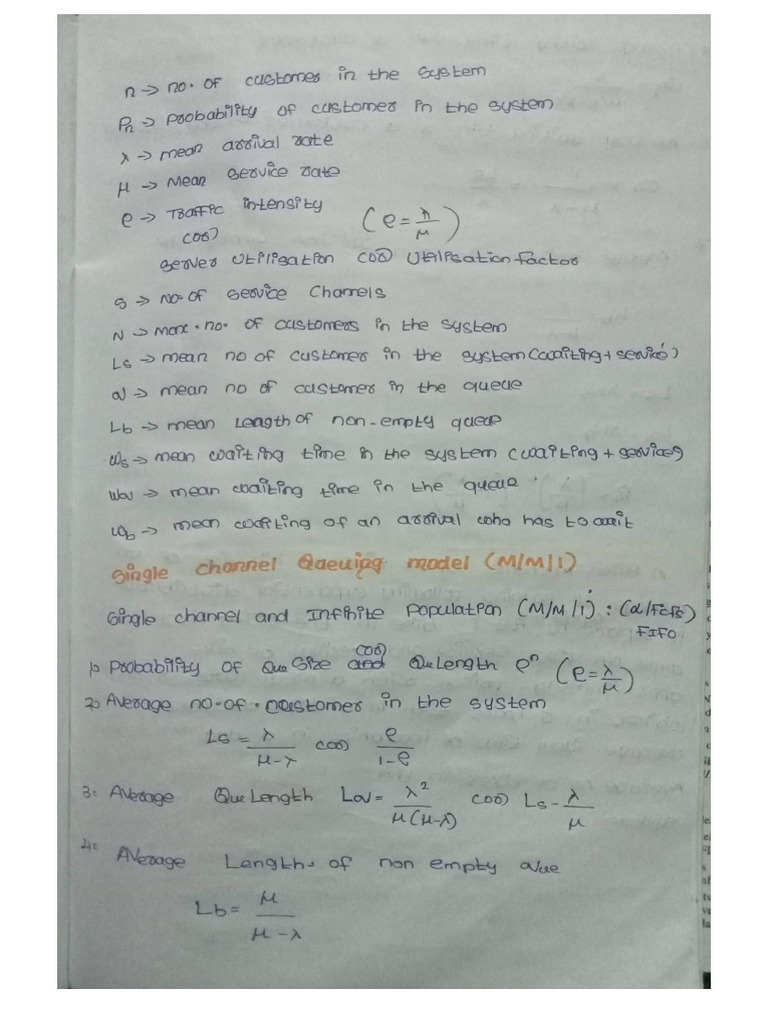 n → no. of customer in the system
Pn → Probability of customer in the system
λ → mean arrival rate
μ → Mean service rate
ρ → Traffic intensity (ρ = λ/μ)
(or)
Server Utilisation (or) Utilisation factor
S → No. of Service Channels
N → Max. no. of customers in the system
Ls → mean no of customer in the system (waiting + service)
→ mean no of customer in the queue
Lb → mean Length of non-empty queue
Ws → mean waiting time in the system (waiting + services)
→ mean waiting time in the queue
Wb → mean waiting of an arrival who has to wait
Single channel Queuing model (M/M/1)
Single channel and Infinite Population (M/M/1) : (α/FCFS)
FIFO
1) Probability of Que Size (or) Que Length ρ^n (ρ = λ/μ)
2) Average no. of. customer in the system
Ls = λ/(μ-λ) (or) ρ/(1-ρ)
3. Average Que Length = λ²/(μ(μ-λ)) (or) Ls - λ/μ
4. Average Length. of non empty
Lb = μ/(μ-λ)